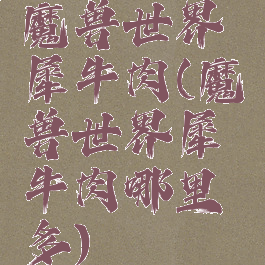 魔兽世界
犀牛肉(魔
兽世界犀
牛肉哪里
多)